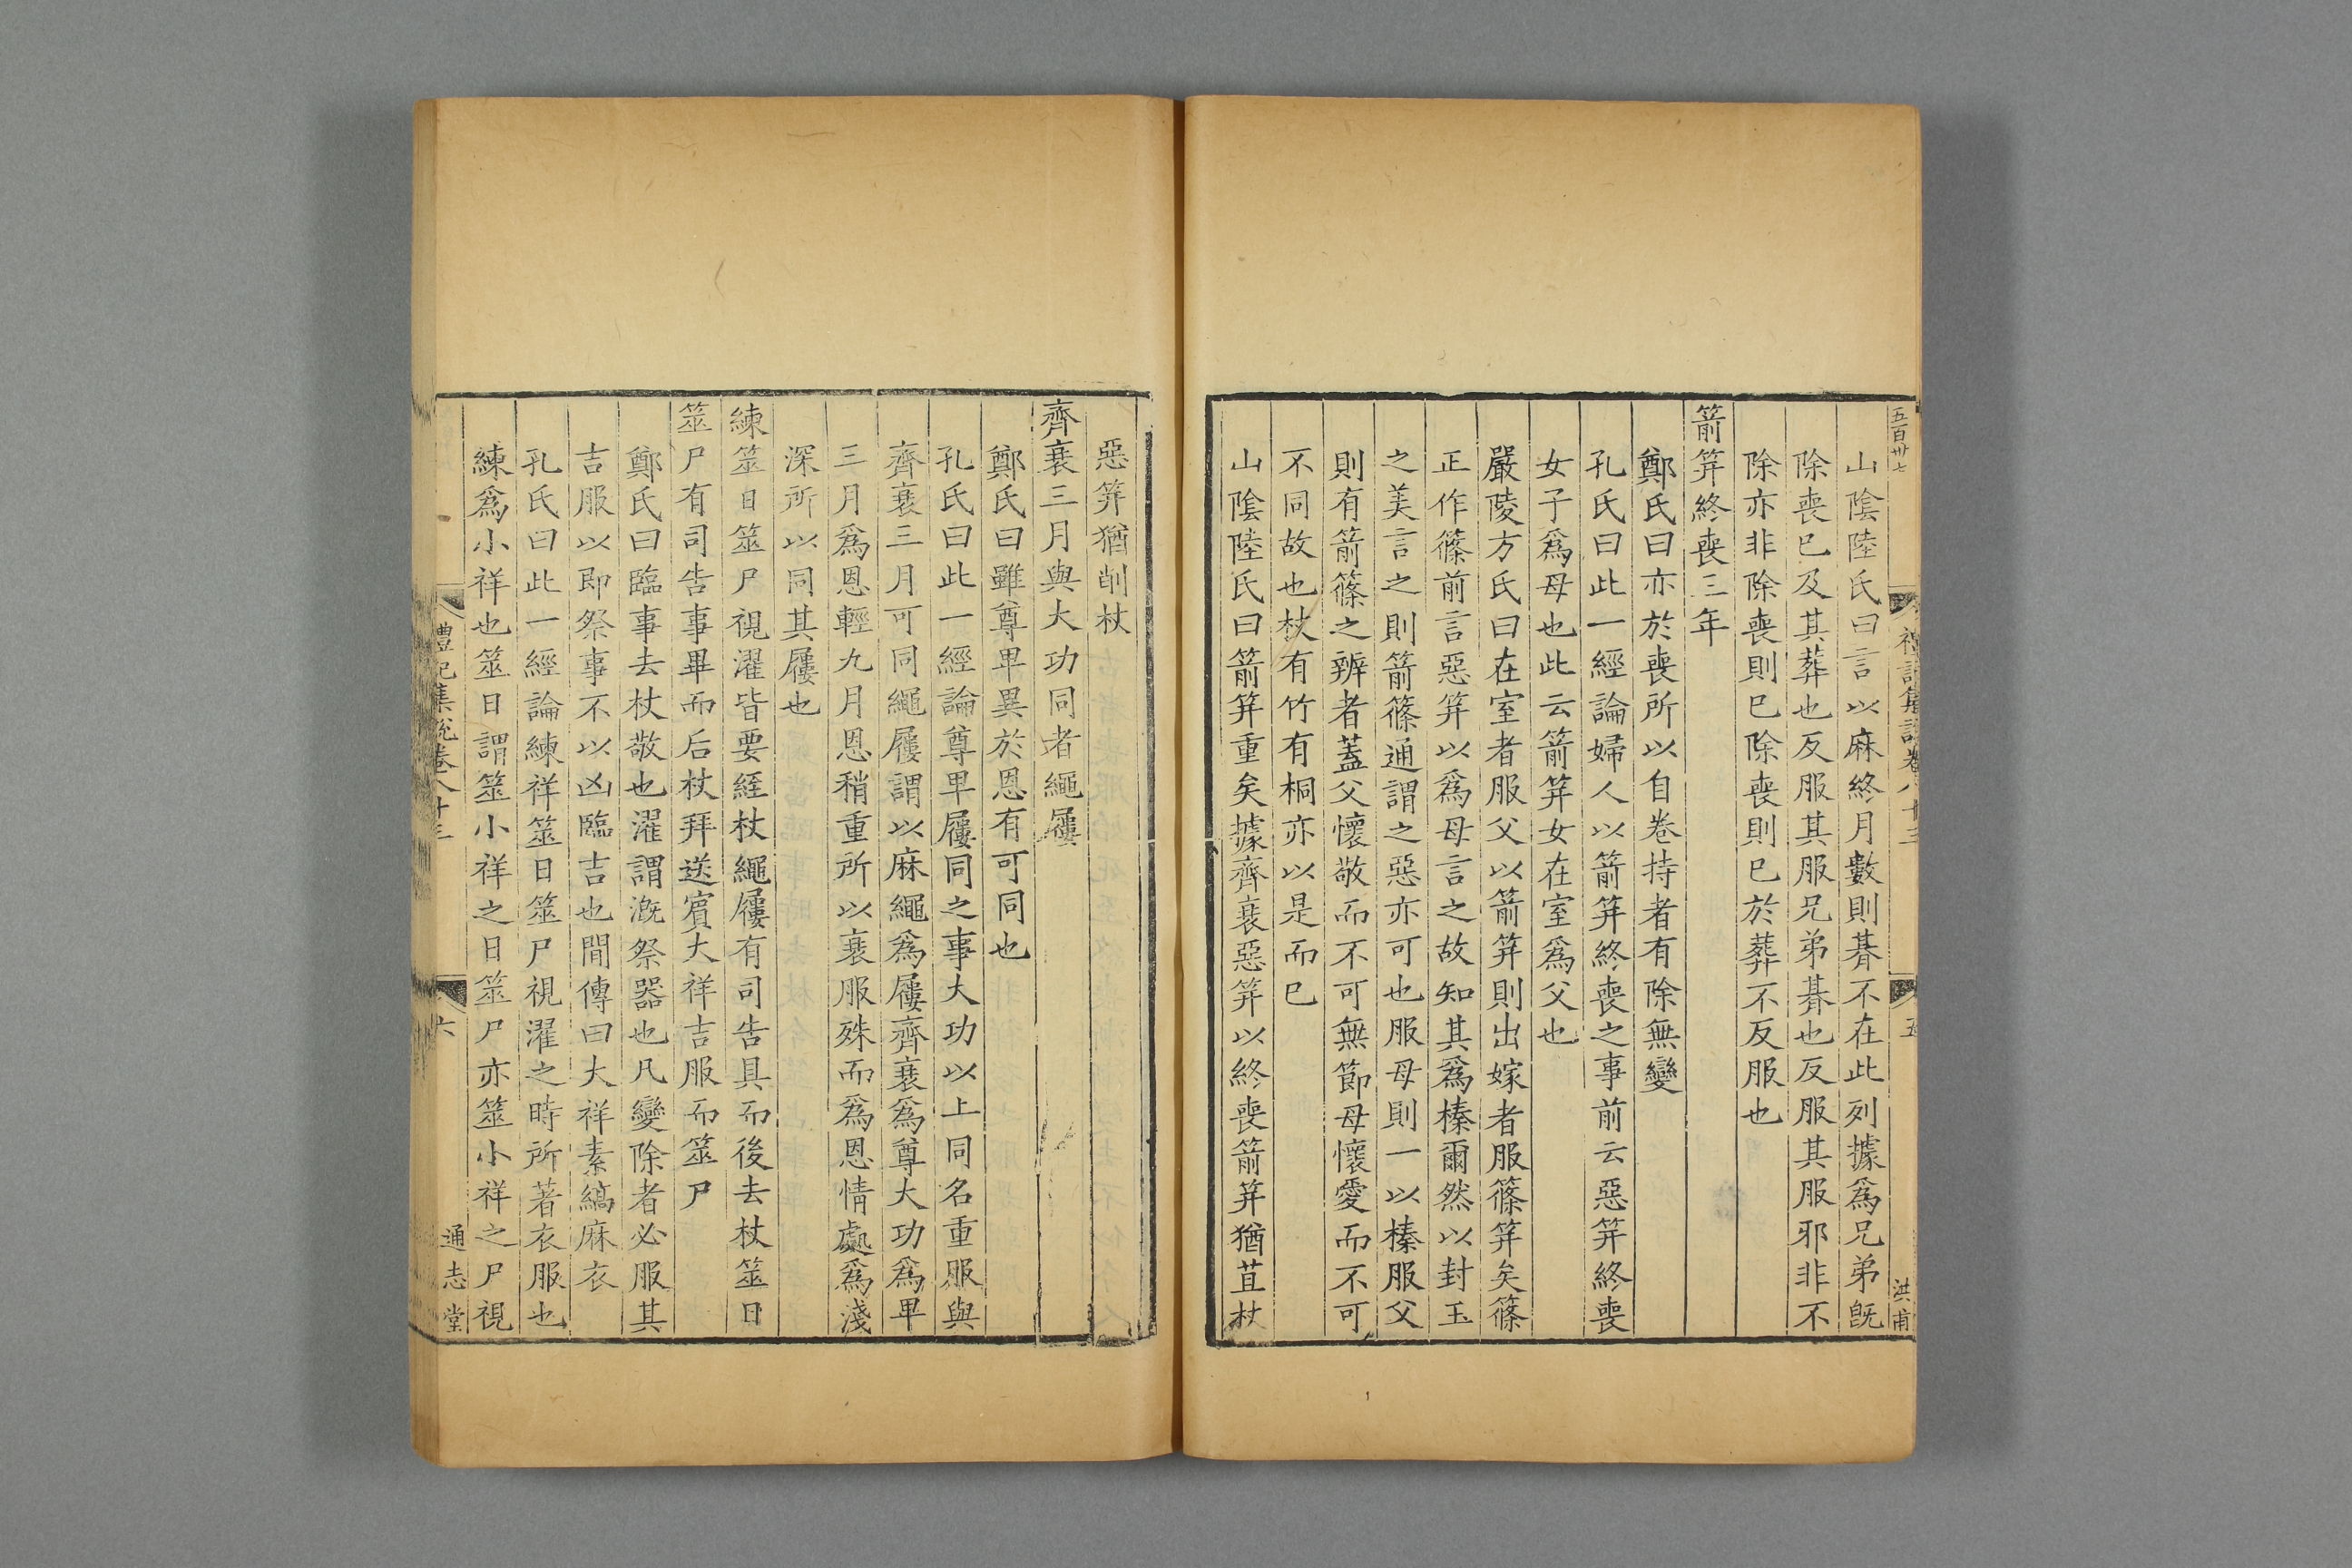 五百卅七
禮記集說卷八十三
五
洪甫
山陰陸氏曰言以麻終月數則朞不在此列據爲兄弟旣
除喪已及其葬也反服其服兄弟朞也反服其服邪非不
除亦非除喪則已除喪則已於葬不反服也
箭筓終喪三年
鄭氏曰亦於喪所以自卷持者有除無變
孔氏曰此一經論婦人以箭筓終喪之事前云惡筓終喪
女子爲母也此云箭筓女在室爲父也
嚴陵方氏曰在室者服父以箭筓則出嫁者服篠筓矣篠
正作篠前言惡筓以爲母言之故知其爲榛爾然以封玉
之美言之則箭篠通謂之惡亦可也服母則一以榛服父
則有箭篠之辨者蓋父懷敬而不可無節母懷愛而不可
不同故也杖有竹有桐亦以是而已
山陰陸氏曰箭筓重矣據齊衰惡筓以終喪箭筓猶苴杖
惡筓猶削杖
齊衰三月與大功同者繩屨
鄭氏曰雖尊卑異於恩有可同也
孔氏曰此一經論尊卑屨同之事大功以上同名重服與
齊衰三月可同繩屨謂以麻繩爲屨齊衰爲尊大功爲卑
三月爲恩輕九月恩稍重所以衰服殊而爲恩情處爲淺
深所以同其屨也
練筮日筮尸視濯皆要絰杖繩屨有司告具而後去杖筮日
筮尸有司告事畢而后杖拜送賓大祥吉服而筮尸
鄭氏曰臨事去杖敬也濯謂漑祭器也凡變除者必服其
吉服以即祭事不以凶臨吉也間傳曰大祥素縞麻衣
孔氏曰此一經論練祥筮日筮尸視濯之時所著衣服也
練爲小祥也筮日謂筮小祥之日筮尸亦筮小祥之尸視
禮記集說卷八十三
六
通志堂